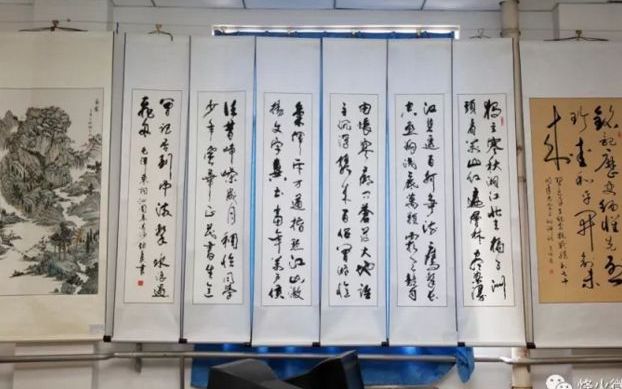 铭记历史缅怀先烈
珍爱和平开创未
来
独立寒秋湘江北去橘子洲
头看万山红遍层林尽染漫
江碧透百舸争流鹰击长
空鱼翔浅底万类霜天竞自
由怅寥廓问苍茫大地谁
主沉浮携来百侣曾游忆
气挥斥方遒指点江山激
扬文字粪土当年万户侯
往昔峥嵘岁月稠恰同学
少年风华正茂书生意
曾记否到中流击水浪遏
飞舟 毛泽东词沁园春长沙